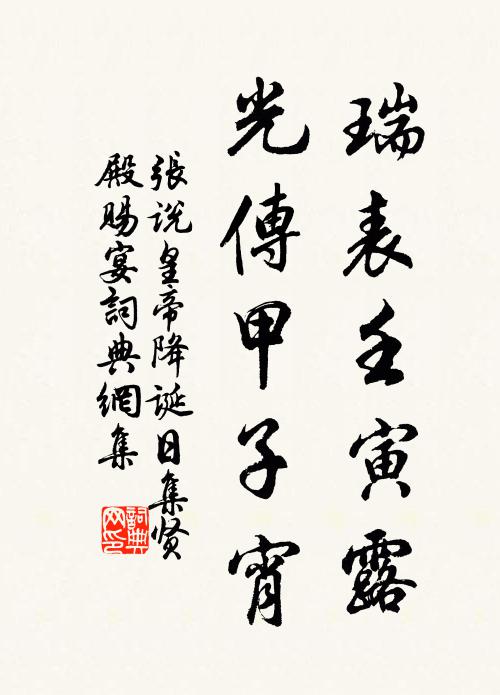 瑞表壬寅露
光傳甲子宵
張說皇帝降誕日集贤
殿賜宴詞典網集
詞典
网印